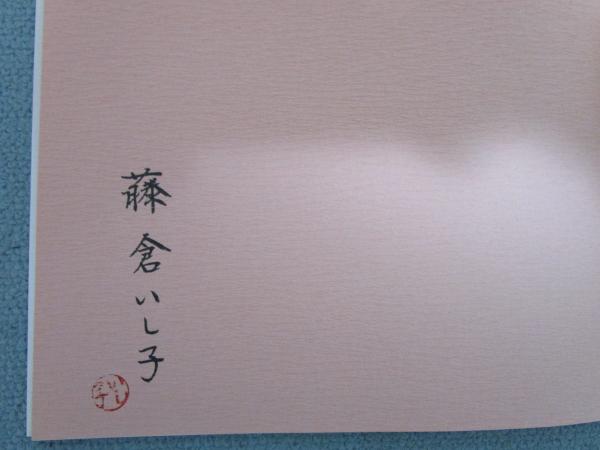 藤倉いし子